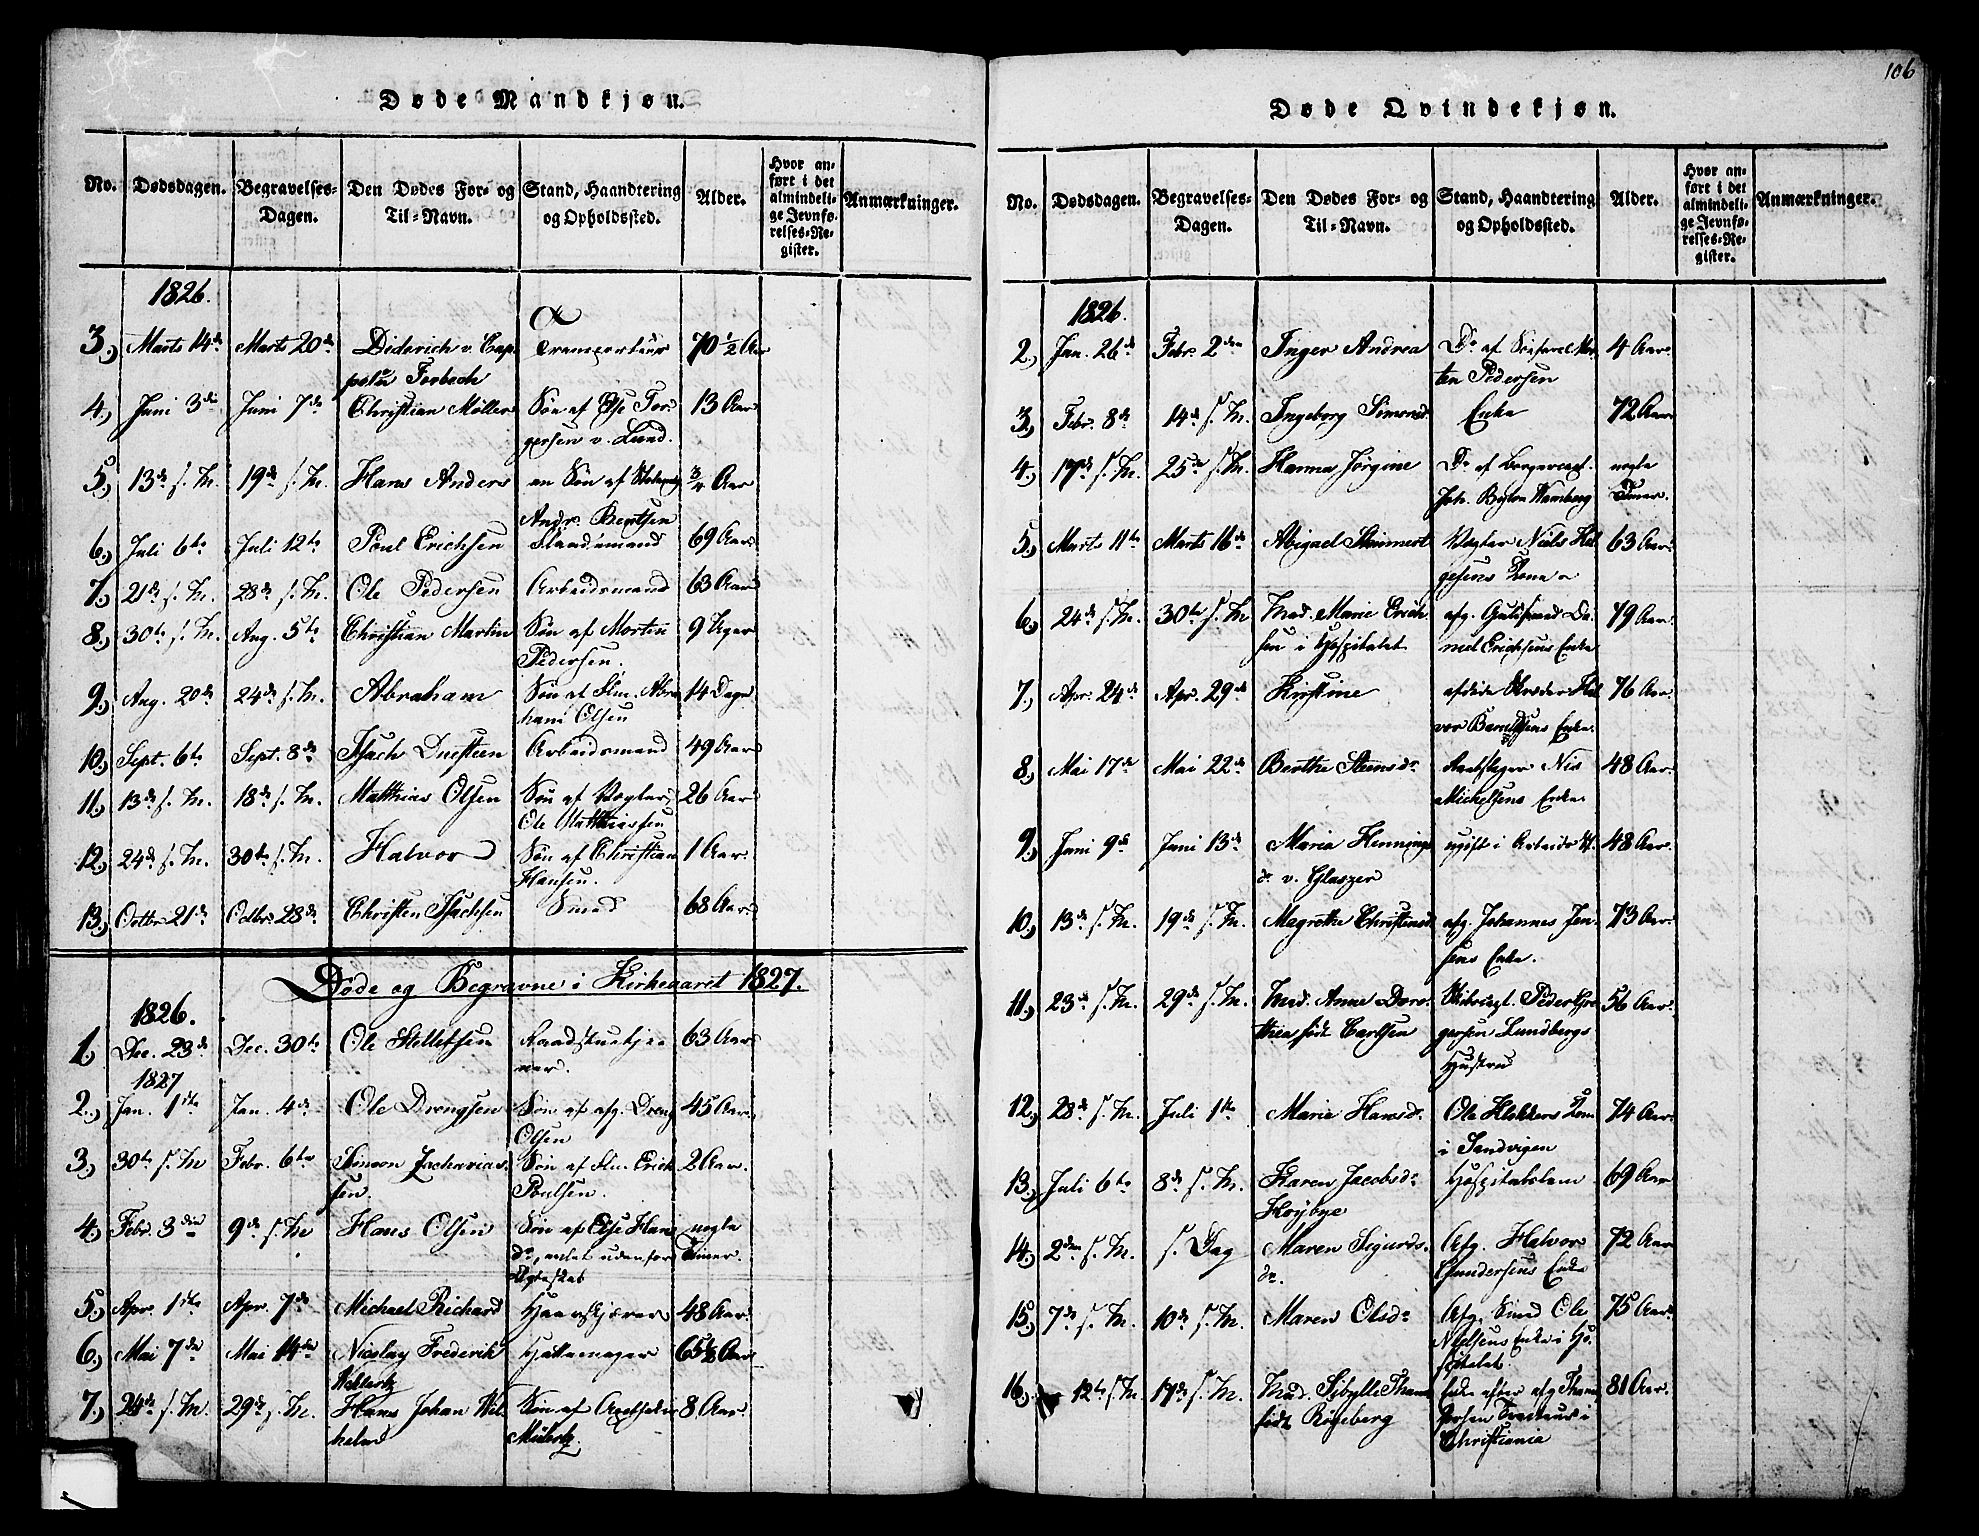 106
Døde Mandkjøn.
No. Dødsdagen. Begravelses-Dagen. Den Dødes For- og Til-Navn. Stand, Haandtering og Opholdssted. Alder. Hvor anført i det almindelige Jevnførelses-Register. Anmærkninger.
1826.
3.) Marts 14de Marts 20de Diderich v. Cappelen Forbech Transporteur 70 1/2 Aar
4.) Juni 3die Juni 7de Christian Møller Søn af Else Torgersen v. Lund. 13 Aar
5.) 13de s. M. 19de s. M. Hans Anders en Søn af Andr. Bentsen 3/4 Aar
6.) Juli 6te Juli 12te Poul Erichsen 69 Aar
7.) 21de s. M. 28de s. M. Ole Pedersen Arbeidsmand 63 Aar
8.) 30te s. M. Aug. 5te Christian Martin Søn af Morten Pedersen. 9 Uger
9.) Aug. 20de 24de s. M. Abraham Søn af Abraham Olsen 14 Dage
10.) Sept. 6te Sept. 8de Isach Duesteen Arbeidsmand 49 Aar
11.) 13de s. M. 18de s. M. Matthias Olsen Søn af Vægter Ole Matthiassen 26 Aar
12.) 24de s. M. 30te s. M. Halvor Søn af Christian Hansen. 1 Aar.
13.) Octbr. 21de Octbr. 28de Christen Isachsen Smed 68 Aar
Døde og Begravne i Kirkeaaret 1827.
1826.
1.) Dec. 23de Dec. 30te Ole Stelletsen 63 Aar
1827
2.) Jan. 1ste Jan. 4de Ole Drengsen Søn af afg. Dreng Olsen 45 Aar
3.) 30te s. M. Febr. 6te Simon Zachariassen. Søn af Erich Poulsen. 2 Aar.
4.) Febr. 3die 9de s. M. Hans Olsen Søn af Else Hansdr., avlet udenfor Ægteskab nogle Timer.
5.) Apr. 1ste Apr. 7de Michael Richard 48 Aar.
6.) Mai 7de Mai 14de Nicolay Frederik Hattemager 65 1/2 Aar
7.) 24de s. M. 29de s. M. Hans Johan Wilhelm Søn af 8 Aar.
Døde Qvindekjøn.
No. Dødsdagen. Begravelses-Dagen. Den Dødes For- og Til-Navn. Stand, Haandtering og Opholdssted. Alder. Hvor anført i det almindelige Jevnførelses-Register. Anmærkninger.
1826.
2.) Jan. 26de Febr. 2den Inger Andrea Dr. af Morten Pedersen 4 Aar.
3.) Febr. 8de 14de s. M. Ingeborg Simonsd. Enke 72 Aar
4.) 17de s. M. 25de s. M. Hanna Jørgine Dr. af Borgercapt. Joh. nogle Timer.
5.) Marts 11te Marts 16de Abigael Vægter Niels Helgesens Kone 63 Aar
6.) 24de s. M. 30te s. M Mad. Marie Erichsen i Hospitalet afg. Daniel Erichsens Enke 79 Aar
7.) Apr. 24de Apr. 29de Kirstine afdøde Skræder Halvor Bentsens Enke. 76 Aar
8.) Mai 17de Mai 22de Berthe Steensdr. Nis Michelsens Enke. 48 Aar.
9.) Juni 9de Juni 13de Maria Henningsdr. v. Glasser ugift i 48 Aar.
10.) 13de s. M. 19de s. M. Magrethe Christensd. afg. Johannes Jensens Enke. 73 Aar.
11.) 23de s. M. 29de s. M. Mad. Anne Dorothea født Carlsen Peder Gregersen Lundbergs Hustru 56 Aar.
12.) 28de s. M. Juli 1ste Marie Hansdr. Ole Klokkers Kone i Sandvigen 74 Aar.
13.) Juli 6te 8de s. M. Karen Jacobsdr. Høybye Hospitalslem 69 Aar
14.) 2den s. M. s. Dag Maren Sigurdsdr. Afg. Halvor Gundersens Enke 72 Aar
15.) 7de s. M. 10de s. M. Maren Olsdr. Afg. Smed Ole Nielsens Enke i Hospitalet. 75 Aar.
16.) 12te s. M 17de s. M. Mad. Sibylle Tham født Røgeberg Enke efter afg. i Christiania 81 Aar.